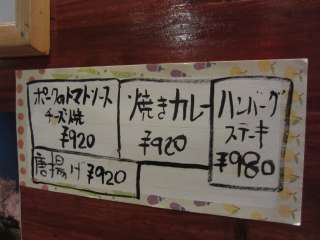 ポークのトマトソース
チーズ焼
¥920
焼きカレー
¥920
ハンバーグ
ステーキ
¥980
唐揚げ ¥920